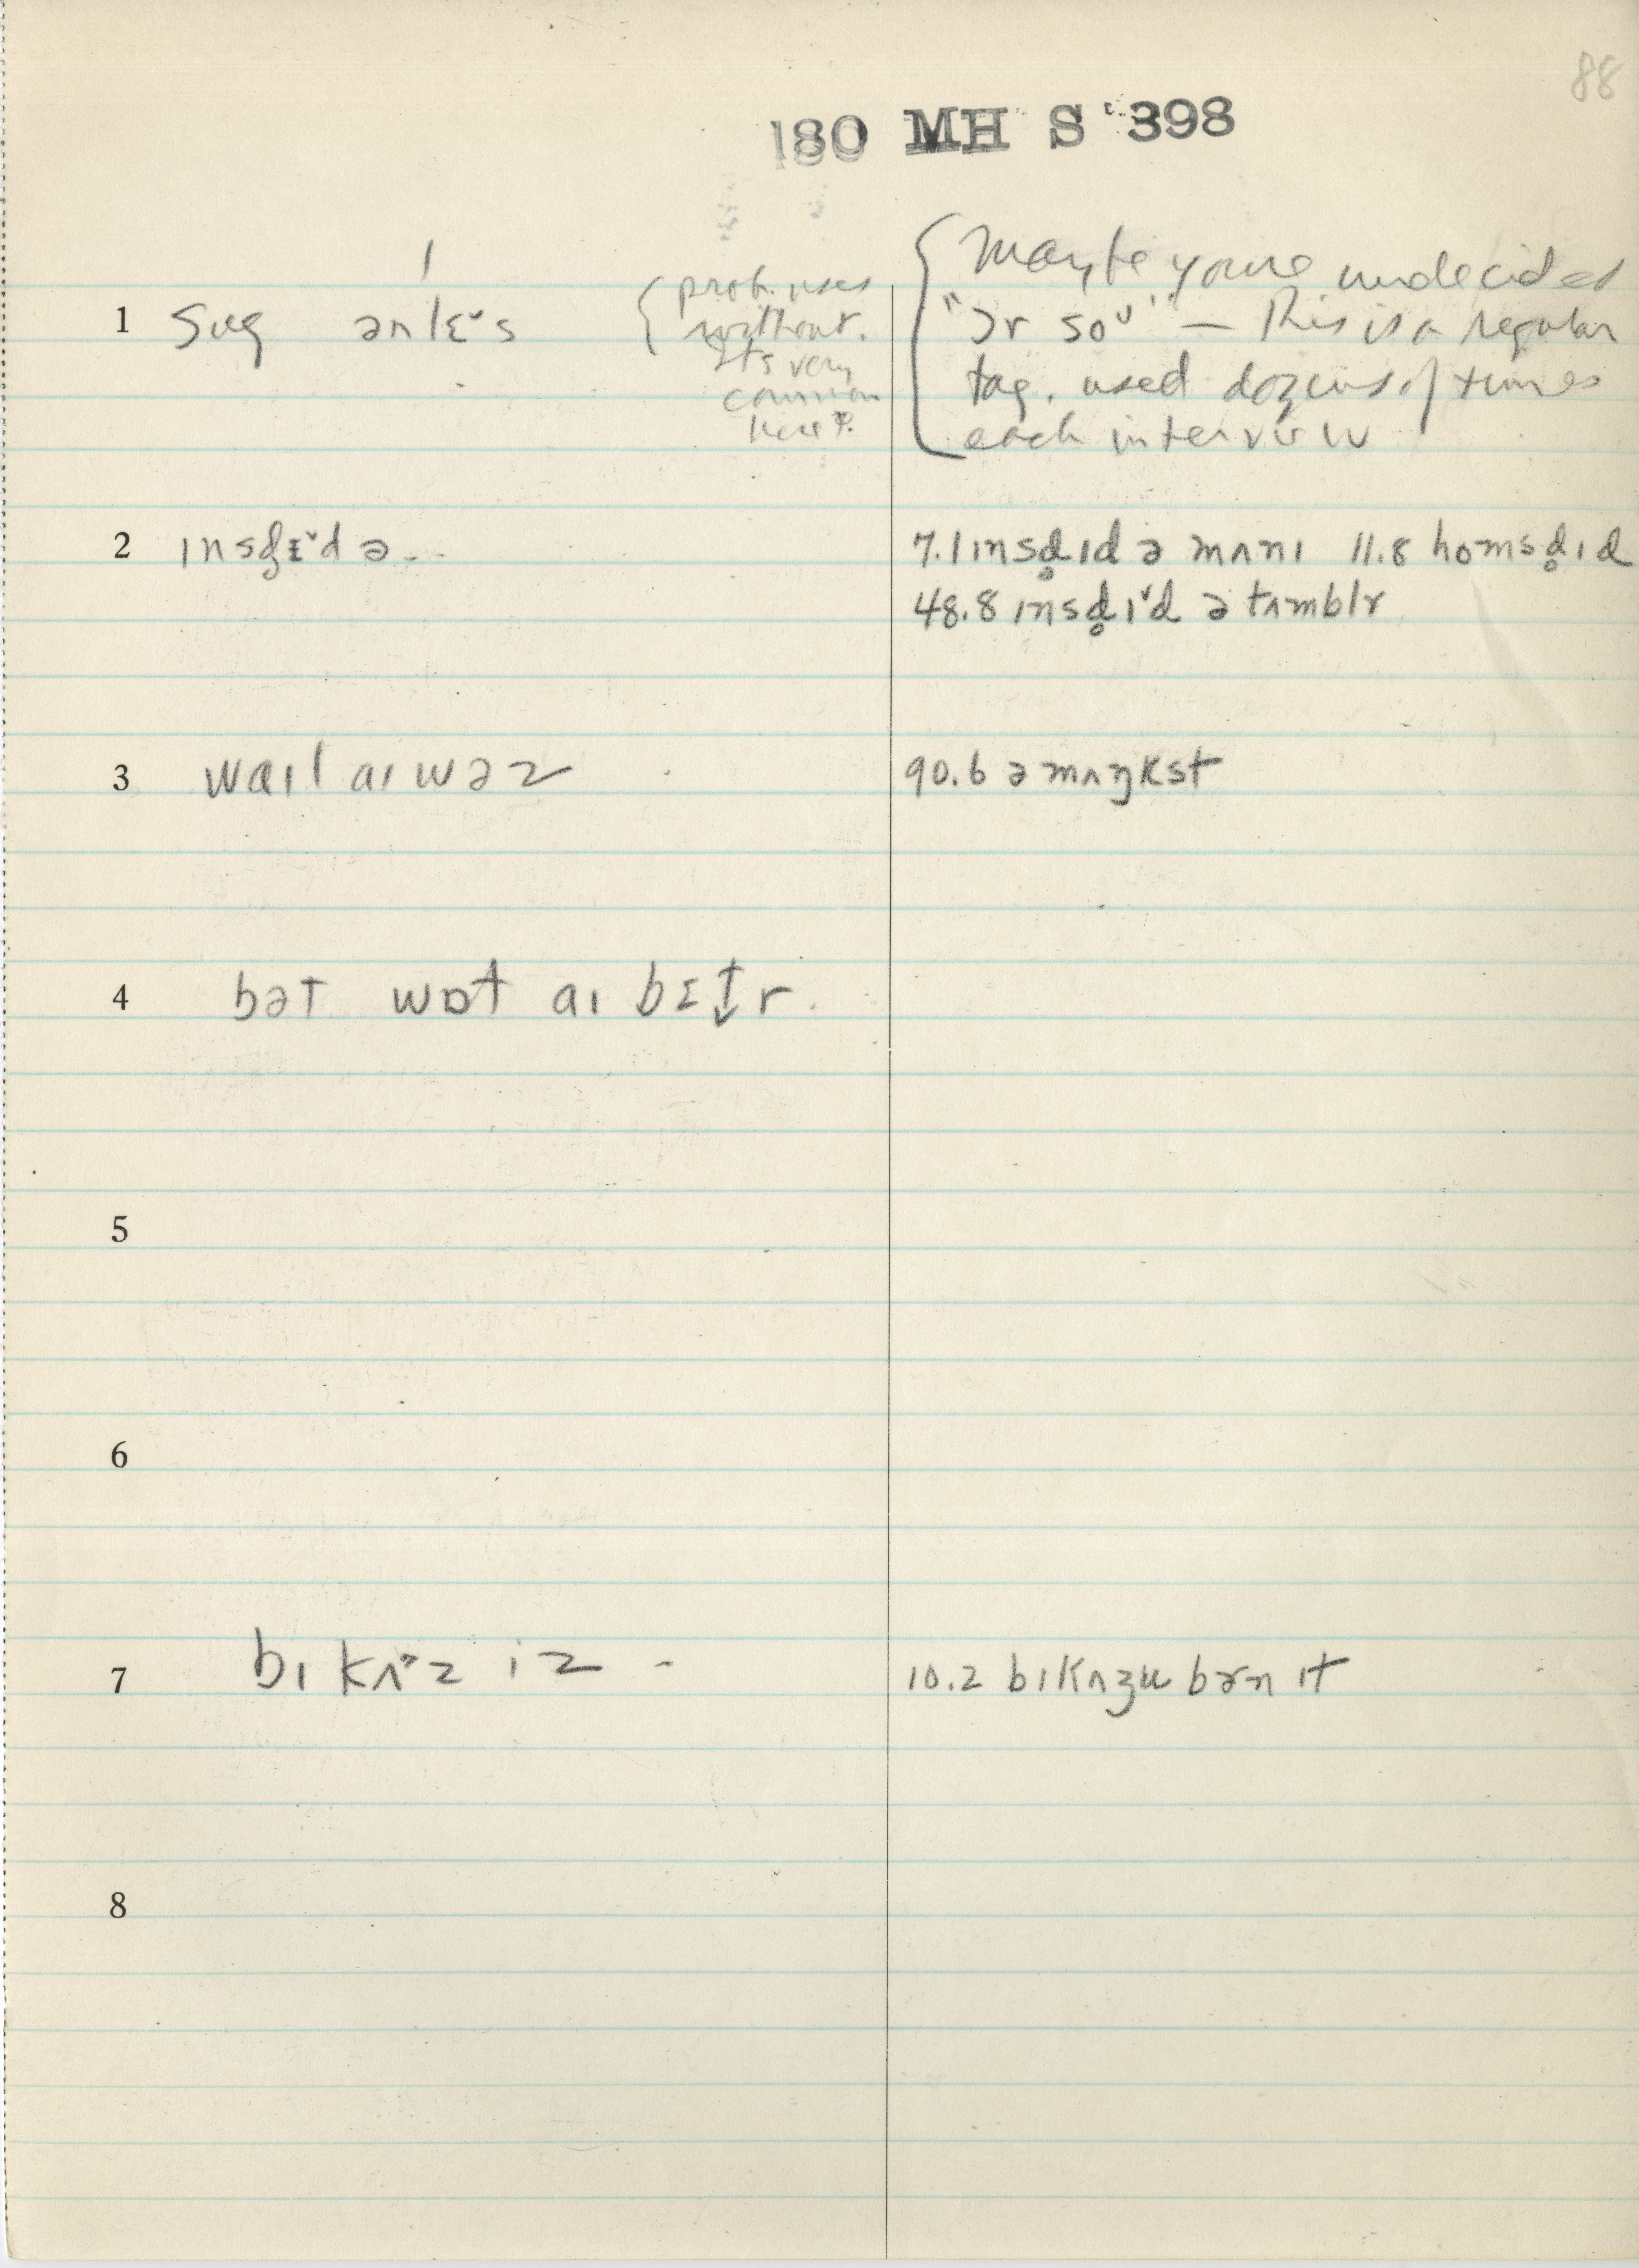 88
180 MH S 398
1 Sug ənlɛ˅s
{ prob. uses
without.
It's very
common
here?.
{ Maybe you're undecided
"ɔr so ᴜ" — This is a regular
tag. used dozens of times
each interview
2 ɪnsd̥ɪ˅d ə...
7.1 ɪnsd̥ɪd ə mʌnɪ 11.8 homsd̥ɪd
48.8 ɪnsd̥ɪ˅d ə tʌmblr
3 waɪl aɪ wəz
90.6 ə mʌŋkst
4 bət wɒt aɪ bɪt̬r.
5
6
7 bɪ kʌ˃z ɪz -
10.2 bɪkʌʒu bɚn ɪt
8